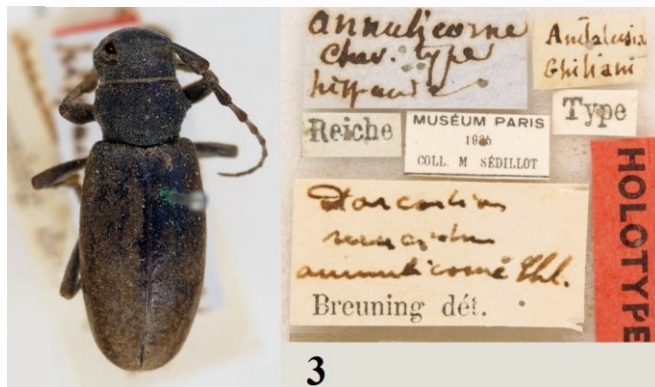 annulicorne
Chev. type
hispanic
Andalusia
Ghiliani
Reiche
MUSÉUM PARIS
1935
COLL. M SÉDILLOT
Type
HOLOTYPE
Dorcadion
annulicorne Chl.
Breuning dét.
3